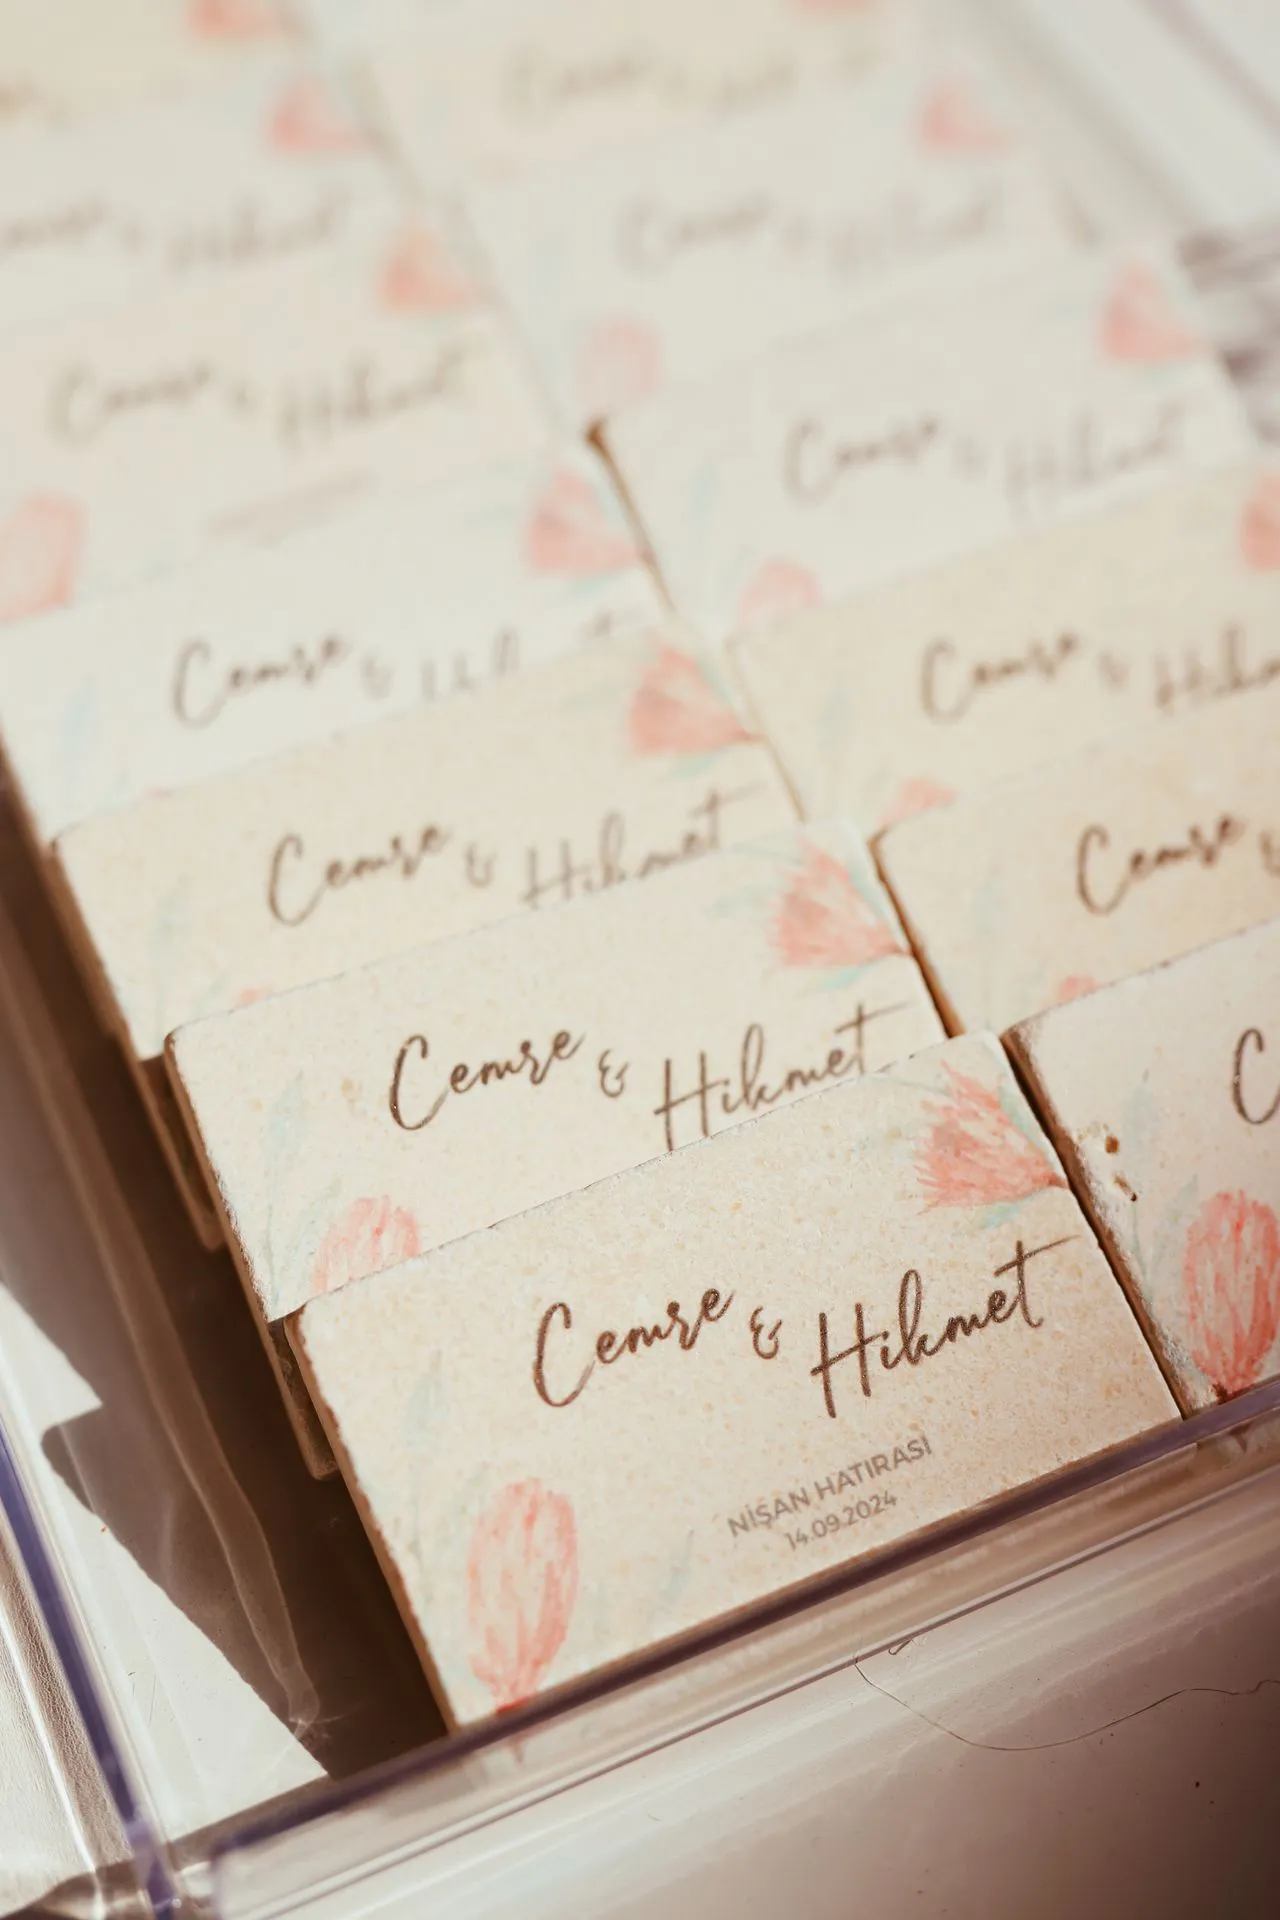 Cemre & Hikmet
Cemre & Hikmet
Cemre & Hikmet
Cemre &
Cemre & Hikmet
Cemre &
Cemre & Hikmet
Cemre & Hikmet
C
Cemre & Hikmet
NİŞAN HATIRASI
14.09.2024